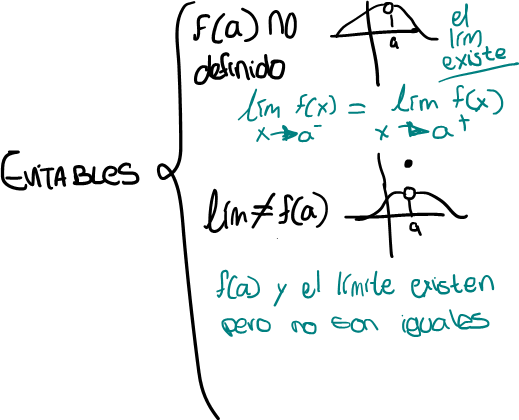 EVITABLES
f(a) no
definido
a
el
lím
existe
lím f(x) = lím f(x)
x→a⁻ x→a⁺
lím ≠ f(a)
a
f(a) y el límite existen
pero no son iguales